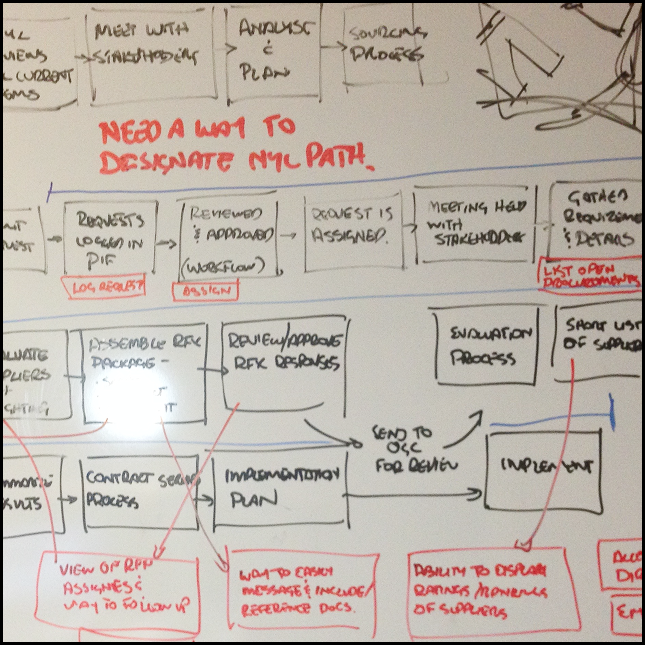 VIEWS
CURRENT
MEET WITH
STAKEHOLDERS
ANALYSE
&
PLAN
SOURCING
PROCESS
NEED A WAY TO
DESIGNATE NYL PATH.
REQUESTS
LOGGED IN
PIF
LOG REQUEST
REVIEWED
& APPROVED
(WORKFLOW)
ASSIGN
REQUEST IS
ASSIGNED.
MEETING HELD
WITH
STAKEHOLDERS
GATHER
REQUIREME
& DETAILS
LIST OPEN
PROCUREMENTS
LUATE
PLIERS
ASSEMBLE RFX
PACKAGE -
REVIEW/APPROVE
RFX RESPONSES
EVALUATION
PROCESS
SHORT LIST
OF SUPPLIE
SEND TO
OGC
FOR REVIEW
SULTS
CONTRACT
PROCESS
IMPLEMENTATION
PLAN
IMPLEMENT
VIEW OF
ASSIGNEES &
WAY TO FOLLOW UP
WAY TO EASILY
MESSAGE & INCLUDE/
REFERENCE DOCS.
ABILITY TO DISPLAY
RATINGS/RANKINGS
OF SUPPLIERS
DIR